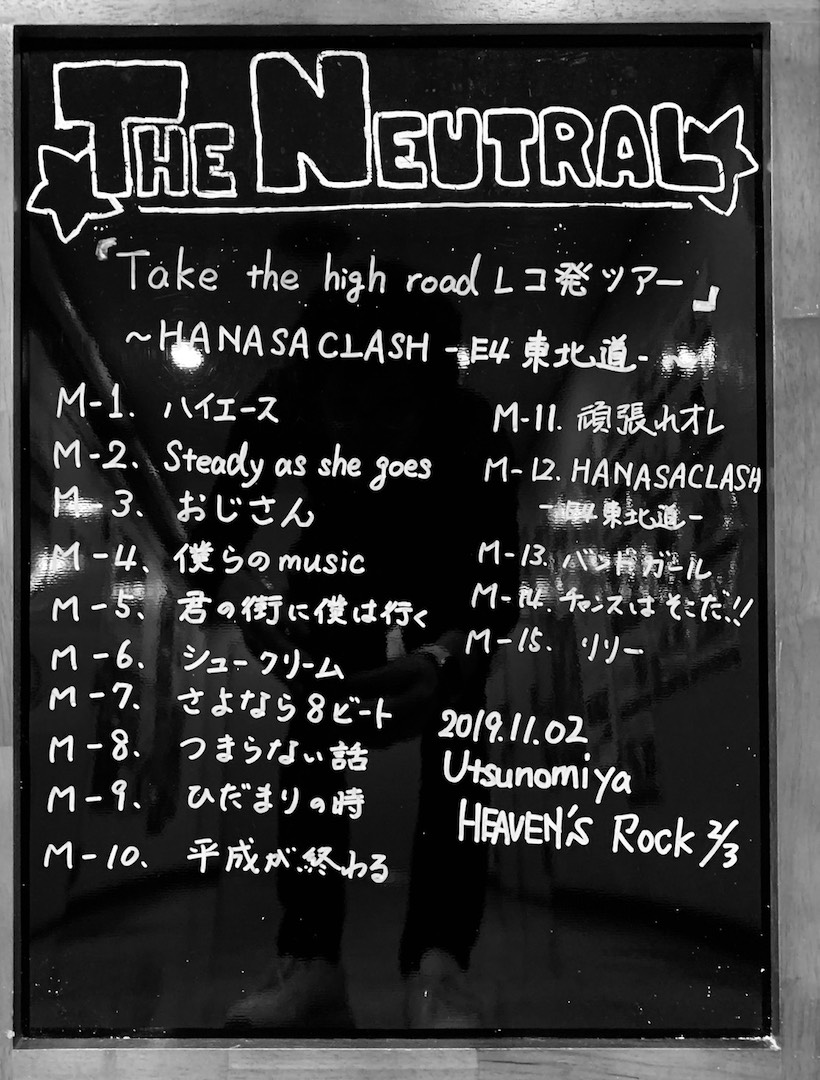 THE NEUTRAL
『Take the high road レコ発ツアー』
~HANASACLASH -E4 東北道- ~
M-1. ハイエース
M-2. Steady as she goes
M-3. おじさん
M-4. 僕らのmusic
M-5. 君の街に僕は行く
M-6. シュークリーム
M-7. さよなら8ビート
M-8. つまらない話
M-9. ひだまりの時
M-10. 平成が終わる
M-11. 頑張れオレ
M-12. HANASACLASH
-E4東北道-
M-13. バンドガール
M-14. チャンスはそこだ!!
M-15. リリー
2019.11.02
Utsunomiya
HEAVEN'S Rock 2/3